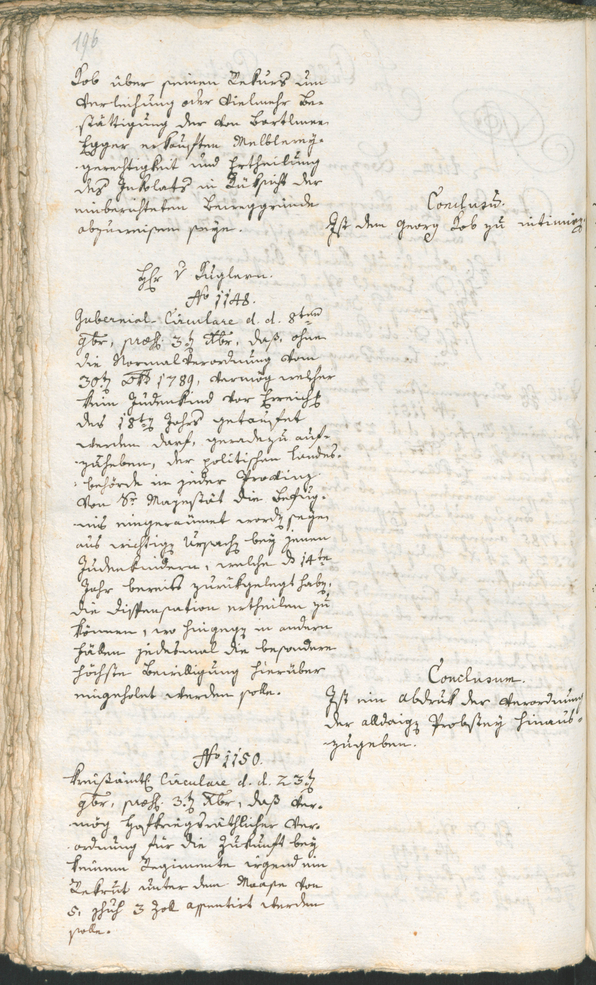 196
Kob über seinen Rekurs um
Verleihung oder vielmehr Be-
stättigung der von Bartlmee
Egger erkauften Melblerey-
gerechtigkeit und Ertheilung
des Inkolats in Rüksicht der
einberichteten
abzuweisen seye.
Conclusum.
Ist dem Georg Kob zu intimiren
Hr v Kuglern.
No 1148.
Gubernial Circulare d. d. 8ten
9br, præs. 3t Xbr, daß, ohne
die Normalverordnung vom
30t 8b 1789, vermög welcher
kein Judenkind vor Erreich
des 18t Jahrs getaufet
werden darf, geradezu auf-
zuheben, der politischen Landes-
behörde in jeder Provinz
von Sr Majestät die Befug-
nis eingeraumet word seye
aus wichtig Ursach bey jenen
Judenkindern, welche d 14te
Jahr bereits zurükgelegt hab,
die Dispensation ertheilen zu
können, wo hingeg in andern
Fällen jedesmal die besondere
höchste Bewilligung hierüber
eingeholet werden solle.
Conclusum.
Ist ein Abdruk der Verordnung
der alldaig Probstey hinaus-
zugeben.
No 1150.
Kreisämtl Circulare d. d. 23t
9br, præs. 3t Xbr, daß ver-
mög hofkriegsräthlicher Ver-
ordnung für die Zukunft bey
keinem Regimente irgend ein
Rekrut unter dem Maase von
5. Schuh 3 Zoll assentirt werden
solle.